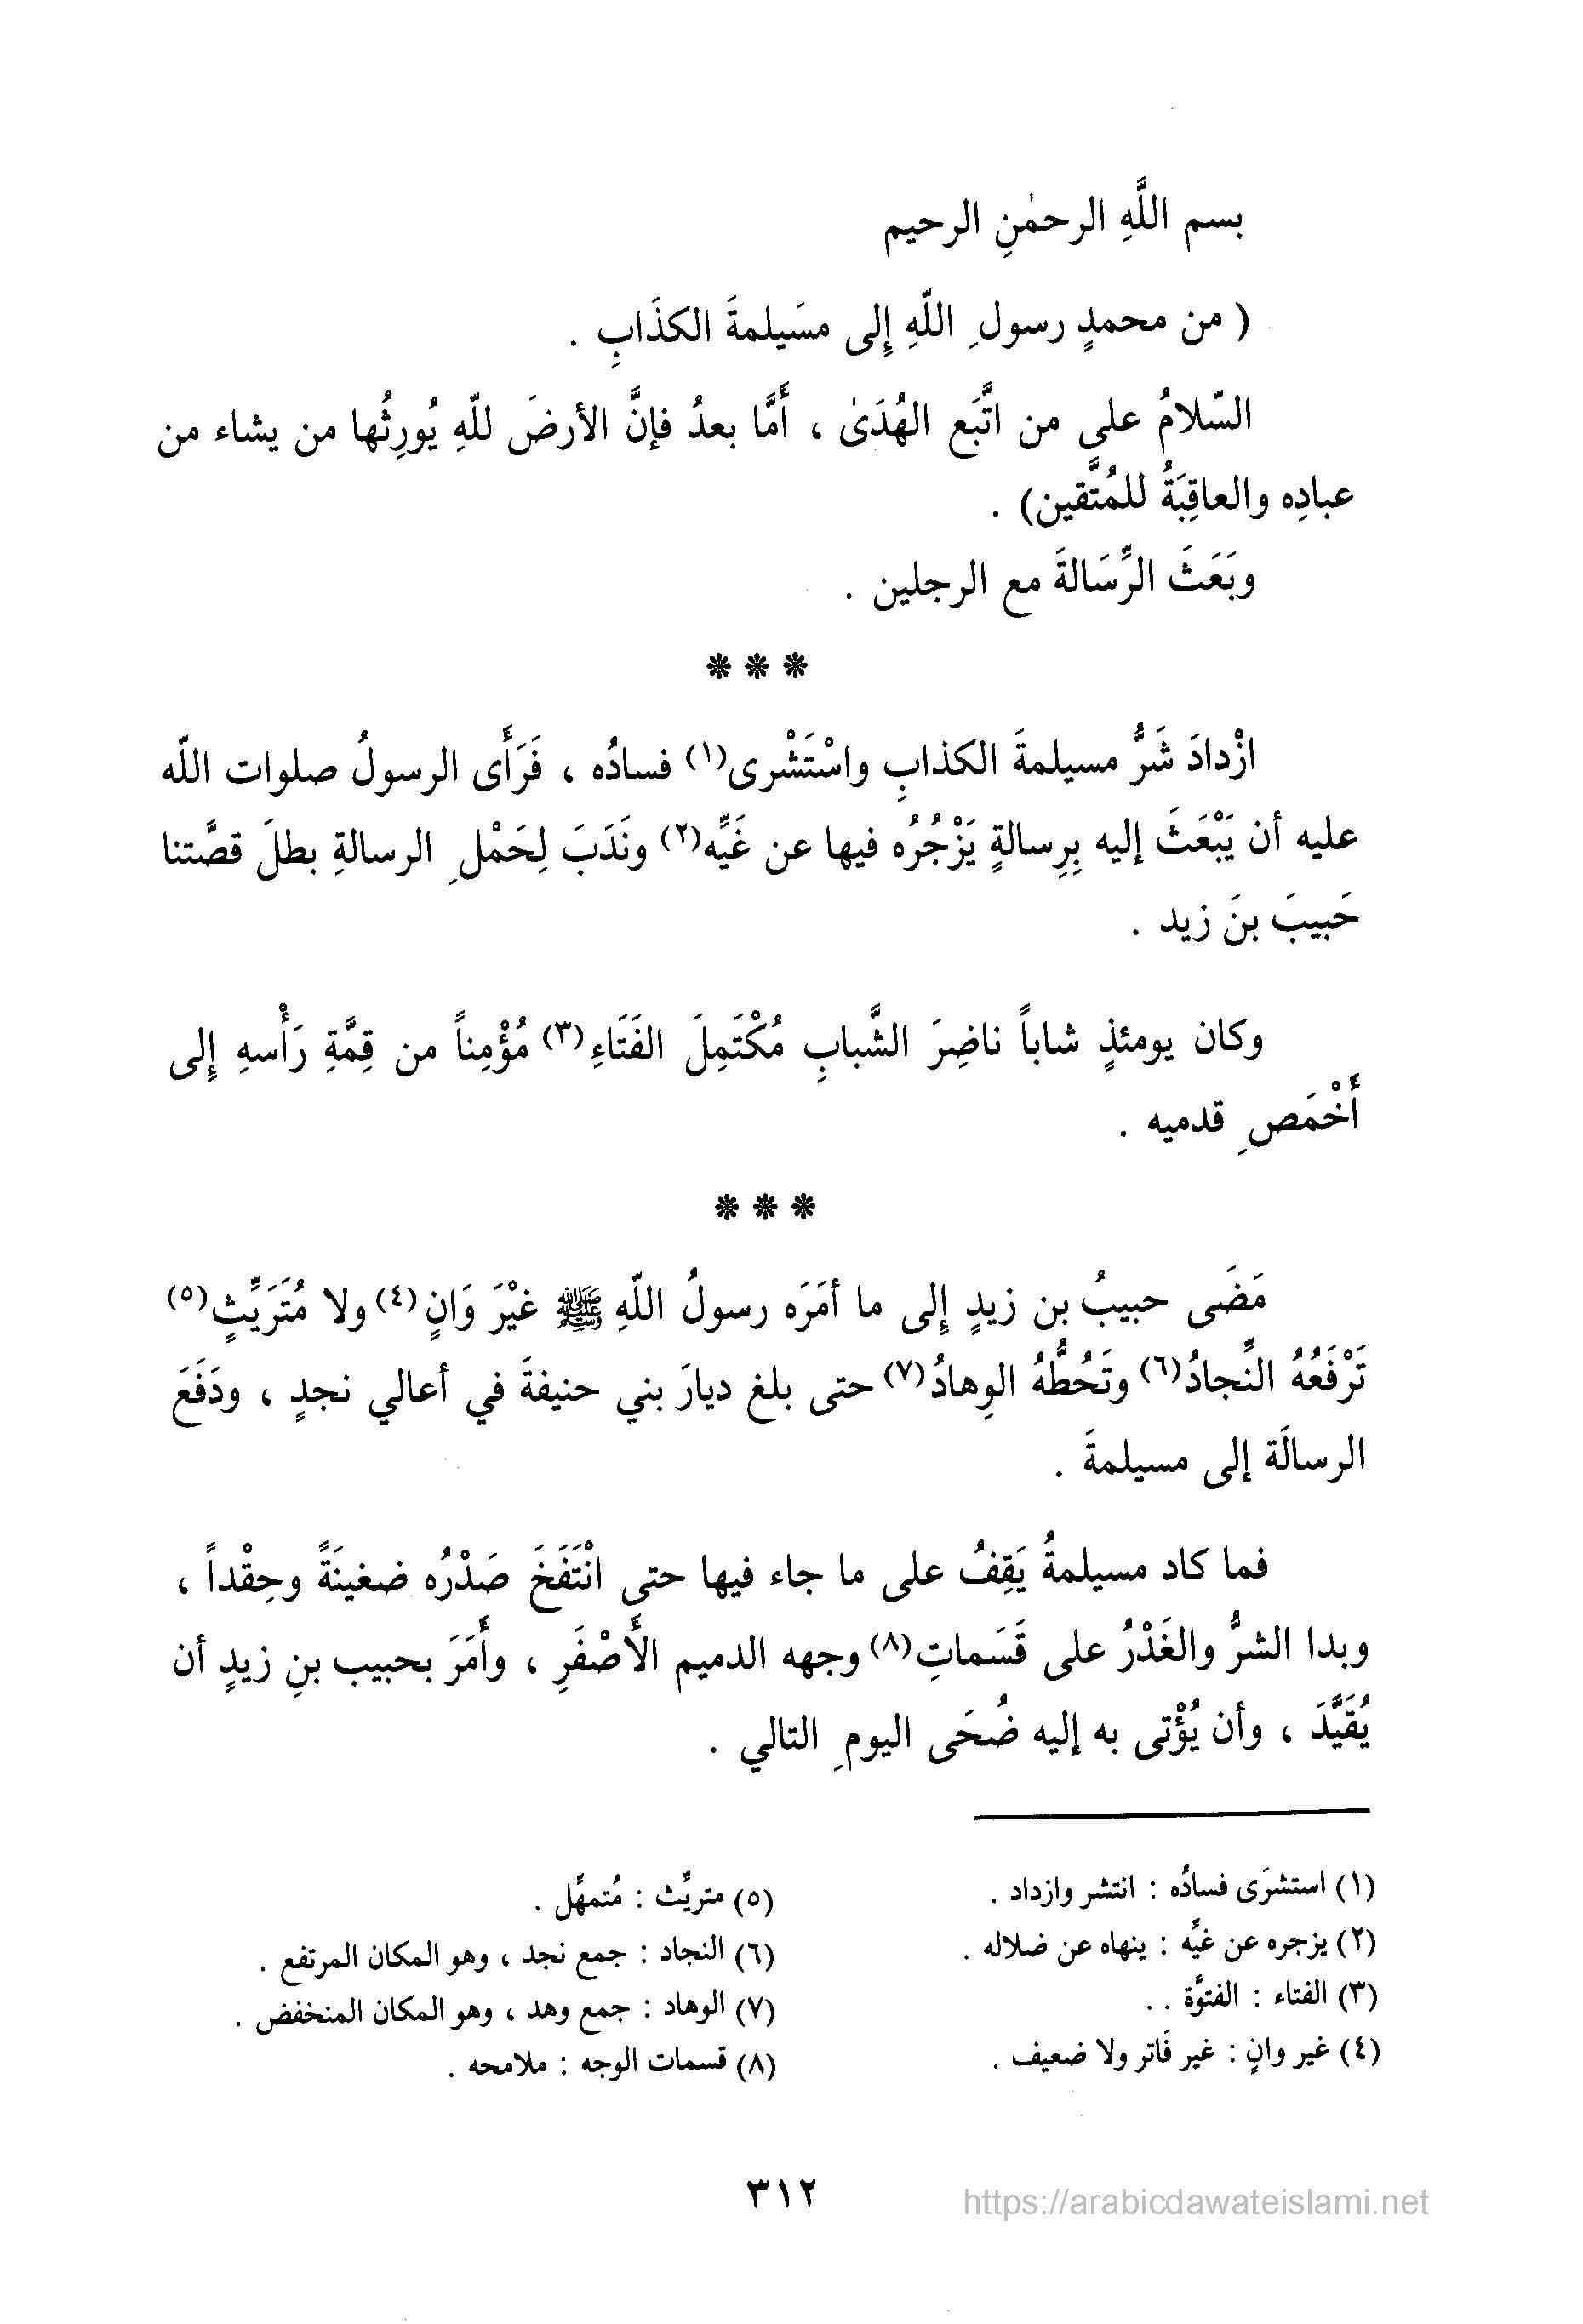 بسم اللَّهِ الرحمٰنِ الرحيم
( من محمدٍ رسولِ اللّهِ إِلى مسَيلمةَ الكذَابِ .
السّلامُ على من اتَّبَع الهُدَىٰ ، أَمَّا بعدُ فإنَّ الأرضَ للّهِ يُورِثُها من يشاء من
عبادِه والعاقِبَةُ للمُتَّقين) .
وبَعَثَ الرِّسَالةَ مع الرجلين .
* * *
ازْدادَ شَرُّ مسيلمةَ الكذابِ واسْتَشْرى(١) فسادُه ، فَرَأَى الرسولُ صلوات اللّه
عليه أن يَبْعَثَ إليه بِرِسالةٍ يَزْجُرُه فيها عن غَيِّه(٢) ونَدَبَ لِحَمْلِ الرسالةِ بطلَ قصَّتنا
حَبيبَ بنَ زيد .
وكان يومئذٍ شاباً ناضِرَ الشَّبابِ مُكْتَمِلَ الفَتَاءِ(٣) مُؤْمِناً من قِمَّةِ رَأْسهِ إِلى
أَخْمَصِ قدميه .
* * *
مَضَى حبيبُ بن زيدٍ إِلى ما أمَرَه رسولُ اللّهِ ﷺ غيْرَ وَانٍ(٤) ولا مُتَرَيِّثٍ(٥)
تَرْفَعُهُ النِّجادُ(٦) وتَحُطُّهُ الوِهادُ(٧) حتى بلغ ديارَ بني حنيفةَ في أعالي نجدٍ ، ودَفَعَ
الرسالَة إلى مسيلمةَ .
فما كاد مسيلمةُ يَقِفُ على ما جاء فيها حتى انْتَفَخَ صَدْرُه ضغينَةً وحِقْداً ،
وبدا الشرُّ والغَدْرُ على قَسَماتِ(٨) وجهه الدميم الأَصْفَرِ ، وأَمَرَ بحبيب بنِ زيدٍ أن
يُقَيَّدَ ، وأن يُؤْتى به إليه ضُحَى اليومِ التالي .
(١) استشرَى فسادُه : انتشر وازداد .
(٢) يزجره عن غيِّه : ينهاه عن ضلاله .
(٣) الفتاء : الفتوَّة . .
(٤) غير وانٍ : غير فَاتر ولا ضعيف .
(٥) متريِّث : مُتمهِّل .
(٦) النجاد : جمع نجد ، وهو المكان المرتفع .
(٧) الوهاد : جمع وهد ، وهو المكان المنخفض .
(٨) قسمات الوجه : ملامحه .
٣١٢
https://arabicdawateislami.net